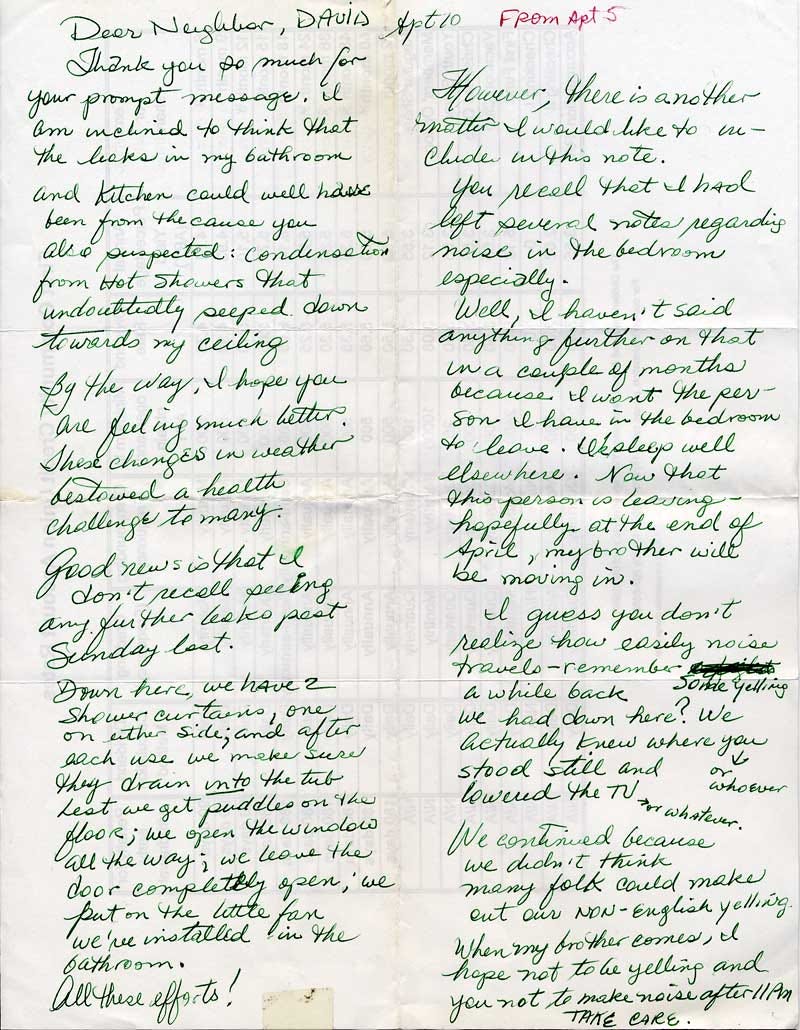 Dear Neighbor, DAVID Apt 10 FROM Apt 5
Thank you so much for
your prompt message. I
am inclined to think that
the leaks in my bathroom
and kitchen could well have
been from the cause you
also suspected: condensation
from Hot Showers that
undoubtedly seeped down
towards my ceiling
By the way, I hope you
are feeling much better.
These changes in weather
bestowed a health
challenge to many.
Good news is that I
don't recall seeing
any further leaks past
Sunday last.
Down here, we have 2
shower curtains, one
on either side; and after
each use we make sure
they drain into the tub
lest we get puddles on the
floor; we open the window
all the way; we leave the
door completely open; we
put on the little fan
we've installed in the
bathroom.
All these efforts!
However, there is another
matter I would like to in-
clude in this note.
You recall that I had
left several notes regarding
noise in the bedroom
especially.
Well, I haven't said
anything further on that
in a couple of months
because I want the per-
son I have in the bedroom
to leave. I sleep well
elsewhere. Now that
this person is leaving-
hopefully at the end of
April, my brother will
be moving in.
I guess you don't
realize how easily noise
travels-remember
some yelling
a while back
we had down here? We
actually knew where you
or whoever
stood still and
lowered the TV → or whatever.
We continued because
we didn't think
many folk could make
out our NON-English yelling.
When my brother comes, I
hope not to be yelling and
you not to make noise after 11 PM
TAKE CARE.